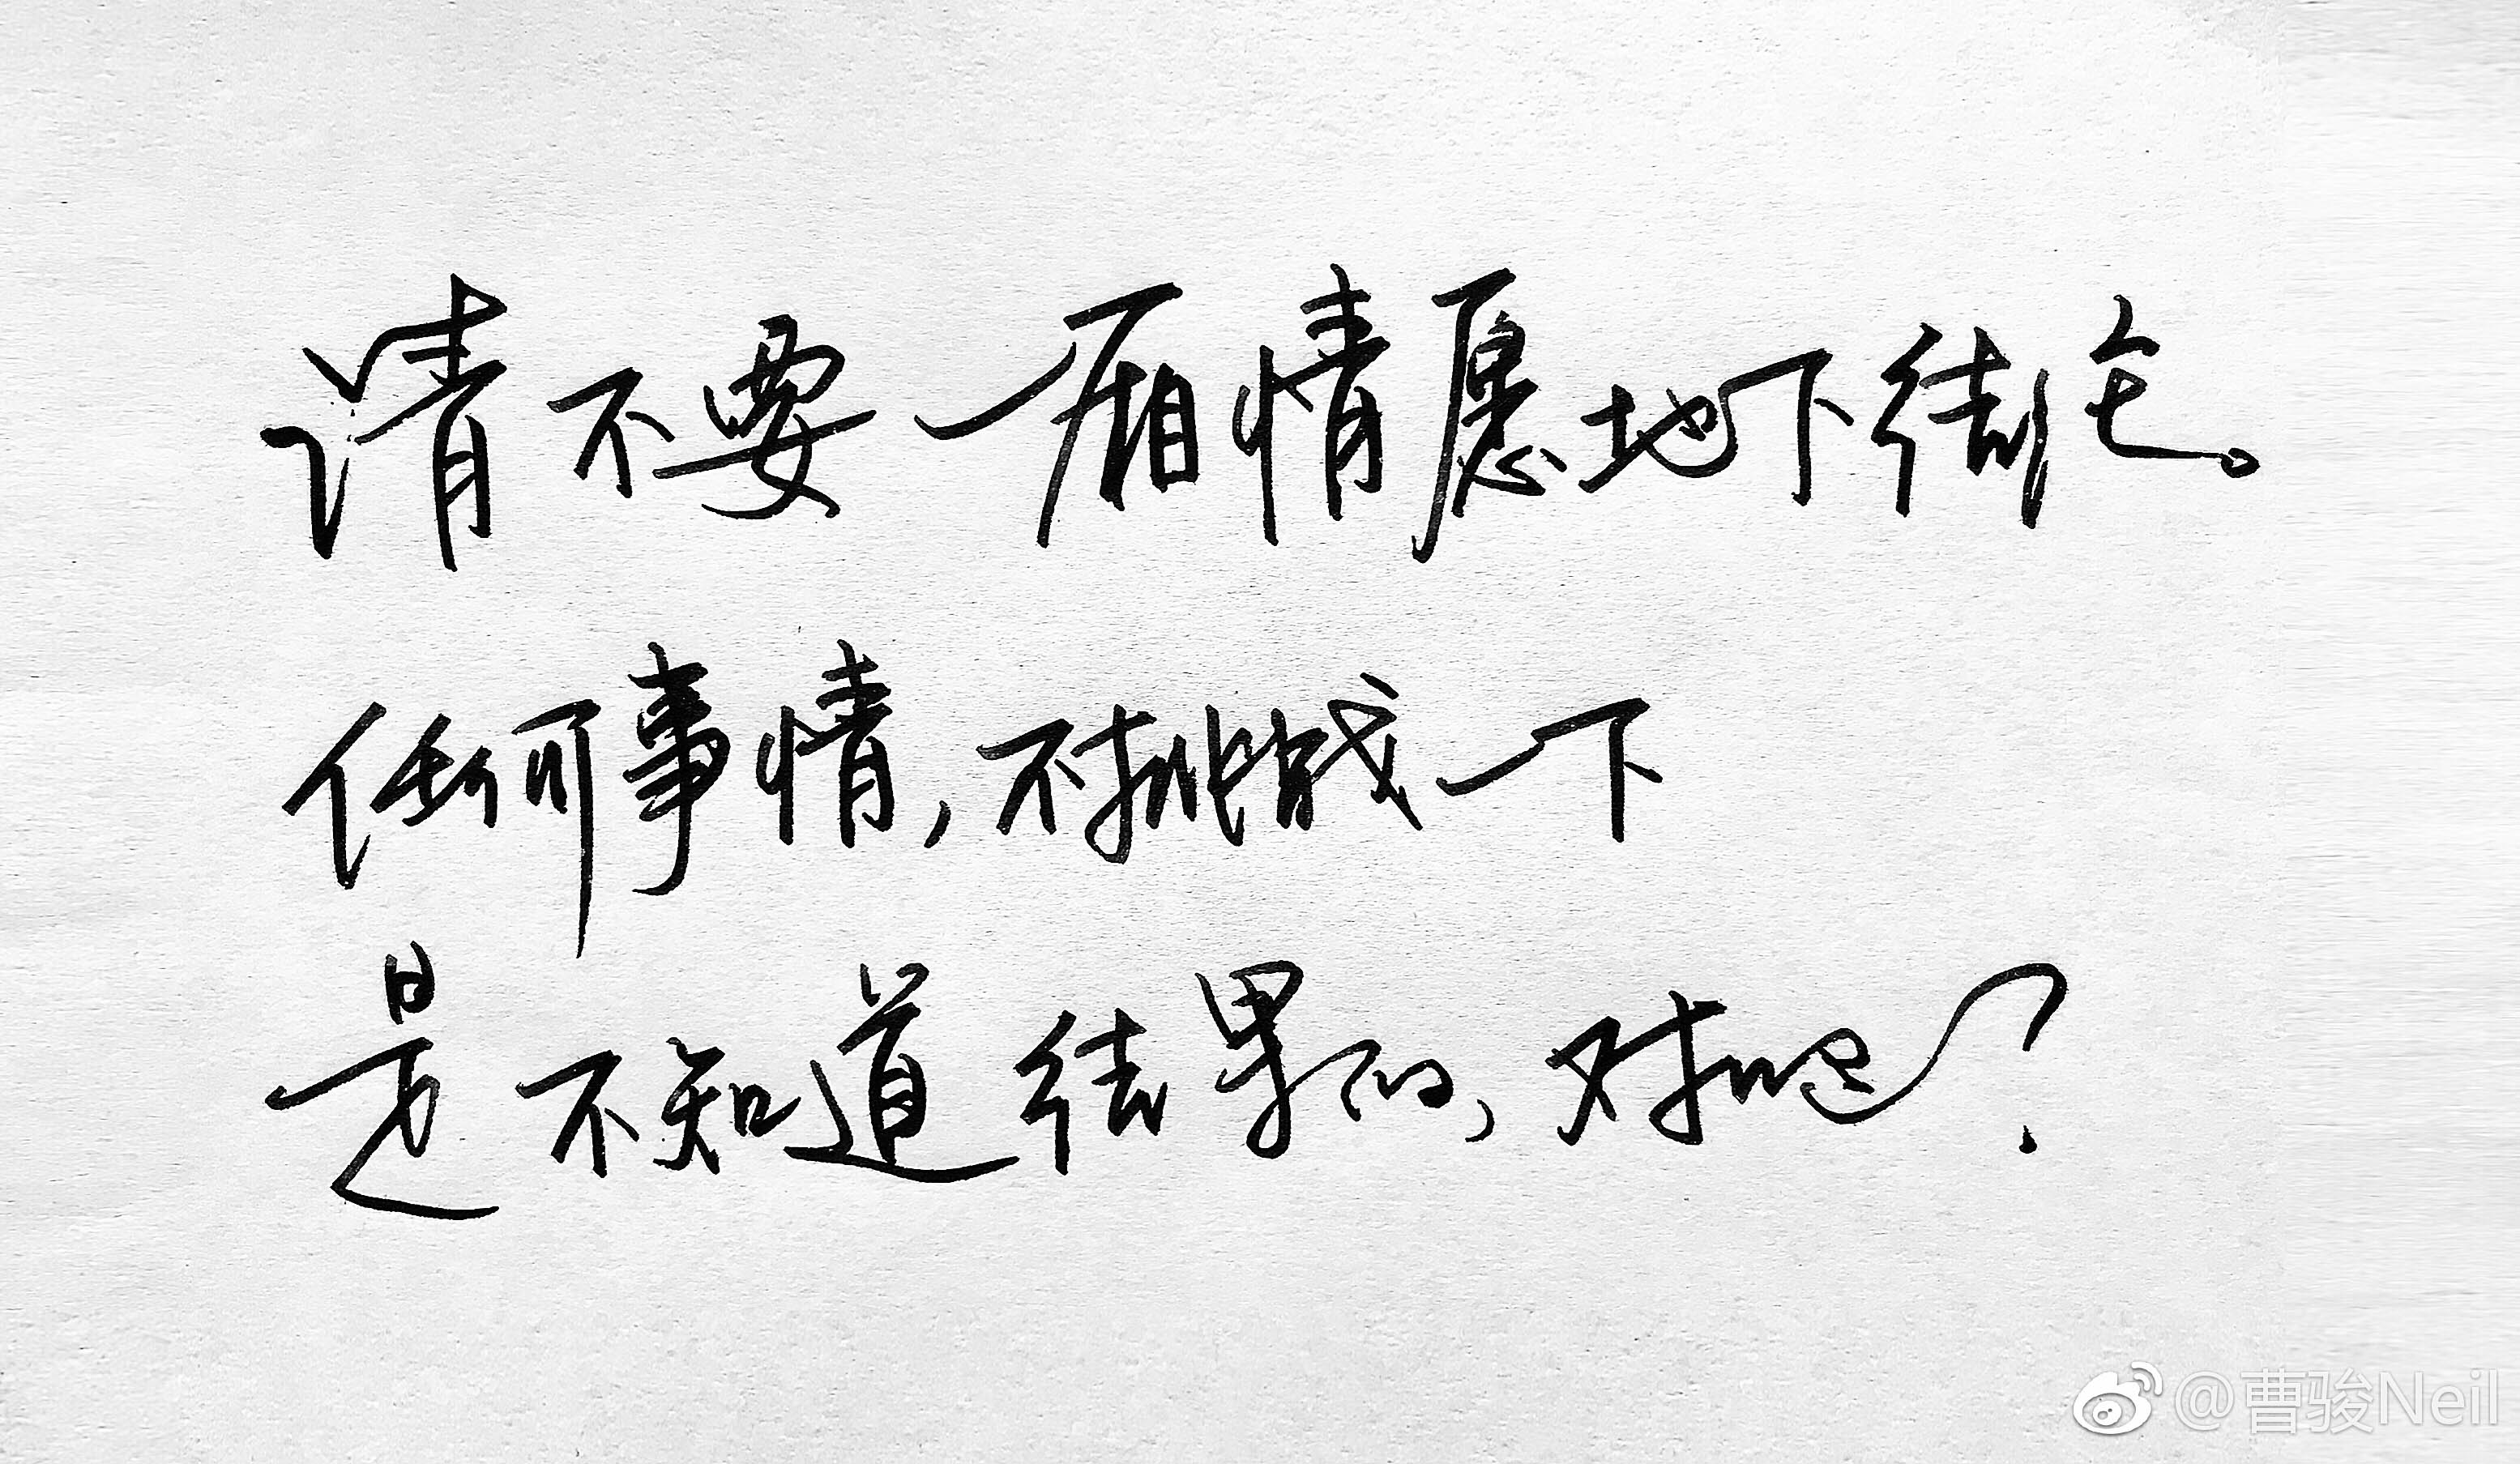 请不要一厢情愿地下结论。
任何事情,不挑战一下
是不知道结果的,对吧?
@曹骏Neil